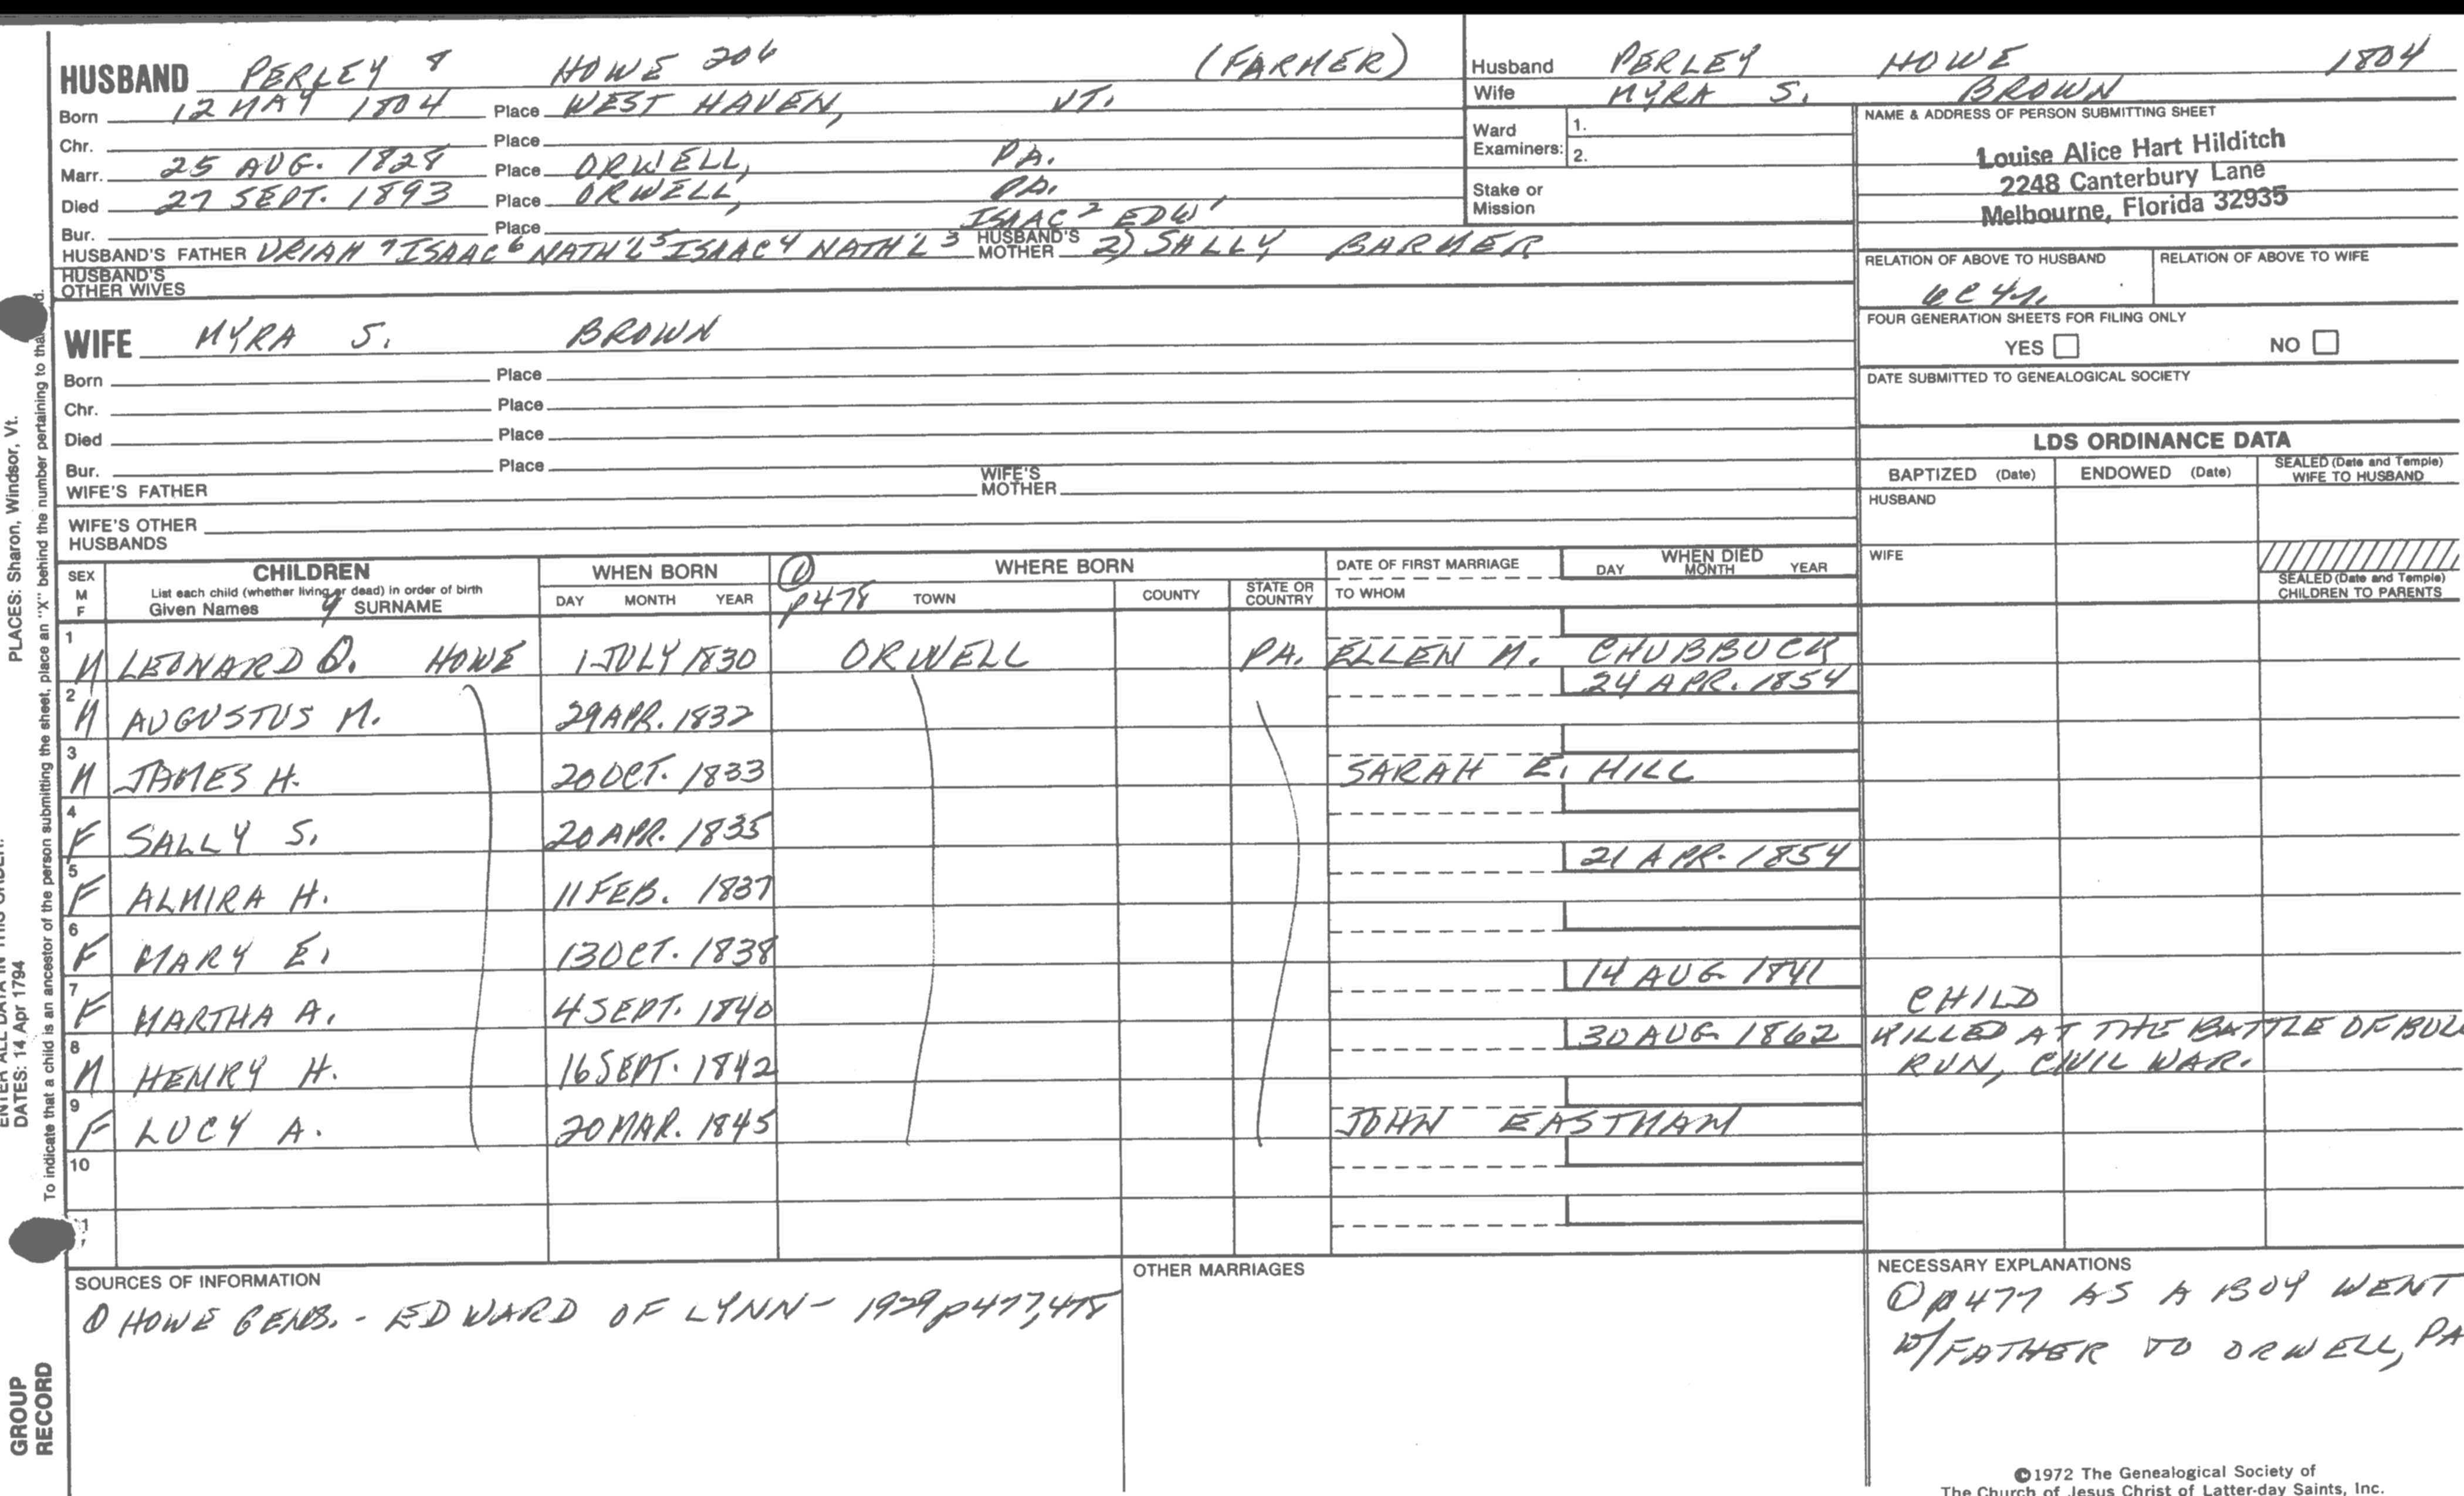 HUSBAND PERLEY 8 HOWE 206 (FARMER)
Born 12 MAY 1804 Place WEST HAVEN, VT.
Chr. Place
Marr. 25 AUG. 1828 Place ORWELL, PA.
Died 27 SEPT. 1893 Place ORWELL, PA.
Bur. Place ISAAC 2 EDW 1
HUSBAND'S FATHER URIAH 7 ISAAC 6 NATH'L 5 ISAAC 4 NATH'L 3 HUSBAND'S MOTHER 2) SALLY BARKER
HUSBAND'S OTHER WIVES
Husband PERLEY HOWE 1804
Wife MYRA S. BROWN
Ward Examiners: 1.
2.
Stake or Mission
NAME & ADDRESS OF PERSON SUBMITTING SHEET
Louise Alice Hart Hilditch
2248 Canterbury Lane
Melbourne, Florida 32935
RELATION OF ABOVE TO HUSBAND RELATION OF ABOVE TO WIFE
FOUR GENERATION SHEETS FOR FILING ONLY
YES NO
DATE SUBMITTED TO GENEALOGICAL SOCIETY
WIFE MYRA S. BROWN
Born Place
Chr. Place
Died Place
Bur. Place
WIFE'S FATHER WIFE'S MOTHER
WIFE'S OTHER HUSBANDS
LDS ORDINANCE DATA
BAPTIZED (Date) ENDOWED (Date) SEALED (Date and Temple) WIFE TO HUSBAND
HUSBAND
WIFE
SEALED (Date and Temple) CHILDREN TO PARENTS
SEX M F CHILDREN
List each child (whether living or dead) in order of birth
Given Names SURNAME
WHEN BORN
DAY MONTH YEAR
① p478 WHERE BORN
TOWN COUNTY STATE OR COUNTRY
DATE OF FIRST MARRIAGE
TO WHOM
WHEN DIED
DAY MONTH YEAR
1 M LEONARD O. HOWE 1 JULY 1830 ORWELL PA. ELLEN M. CHUBBUCK
24 APR. 1854
2 M AUGUSTUS M. 29 APR. 1832
3 M JAMES H. 20 OCT. 1833 SARAH E. HILL
4 F SALLY S. 20 APR. 1835
21 APR. 1854
5 F ALMIRA H. 11 FEB. 1837
6 F MARY E. 13 OCT. 1838
14 AUG. 1841 CHILD
7 F MARTHA A. 4 SEPT. 1840
30 AUG. 1862 KILLED AT THE BATTLE OF BULL
8 M HENRY H. 16 SEPT. 1842 RUN, CIVIL WAR.
9 F LUCY A. 20 MAR. 1845 JOHN EASTMAN
10
SOURCES OF INFORMATION
① HOWE GENS. - EDWARD OF LYNN - 1929 p477,478
OTHER MARRIAGES
NECESSARY EXPLANATIONS
① p477 AS A BOY WENT
W/FATHER TO ORWELL, PA
©1972 The Genealogical Society of
The Church of Jesus Christ of Latter-day Saints, Inc.
PLACES: Sharon, Windsor, Vt.
ENTER ALL DATA IN THIS ORDER:
DATES: 14 Apr 1794
To indicate that a child is an ancestor of the person submitting the sheet, place an "X" behind the number pertaining to that
GROUP
RECORD